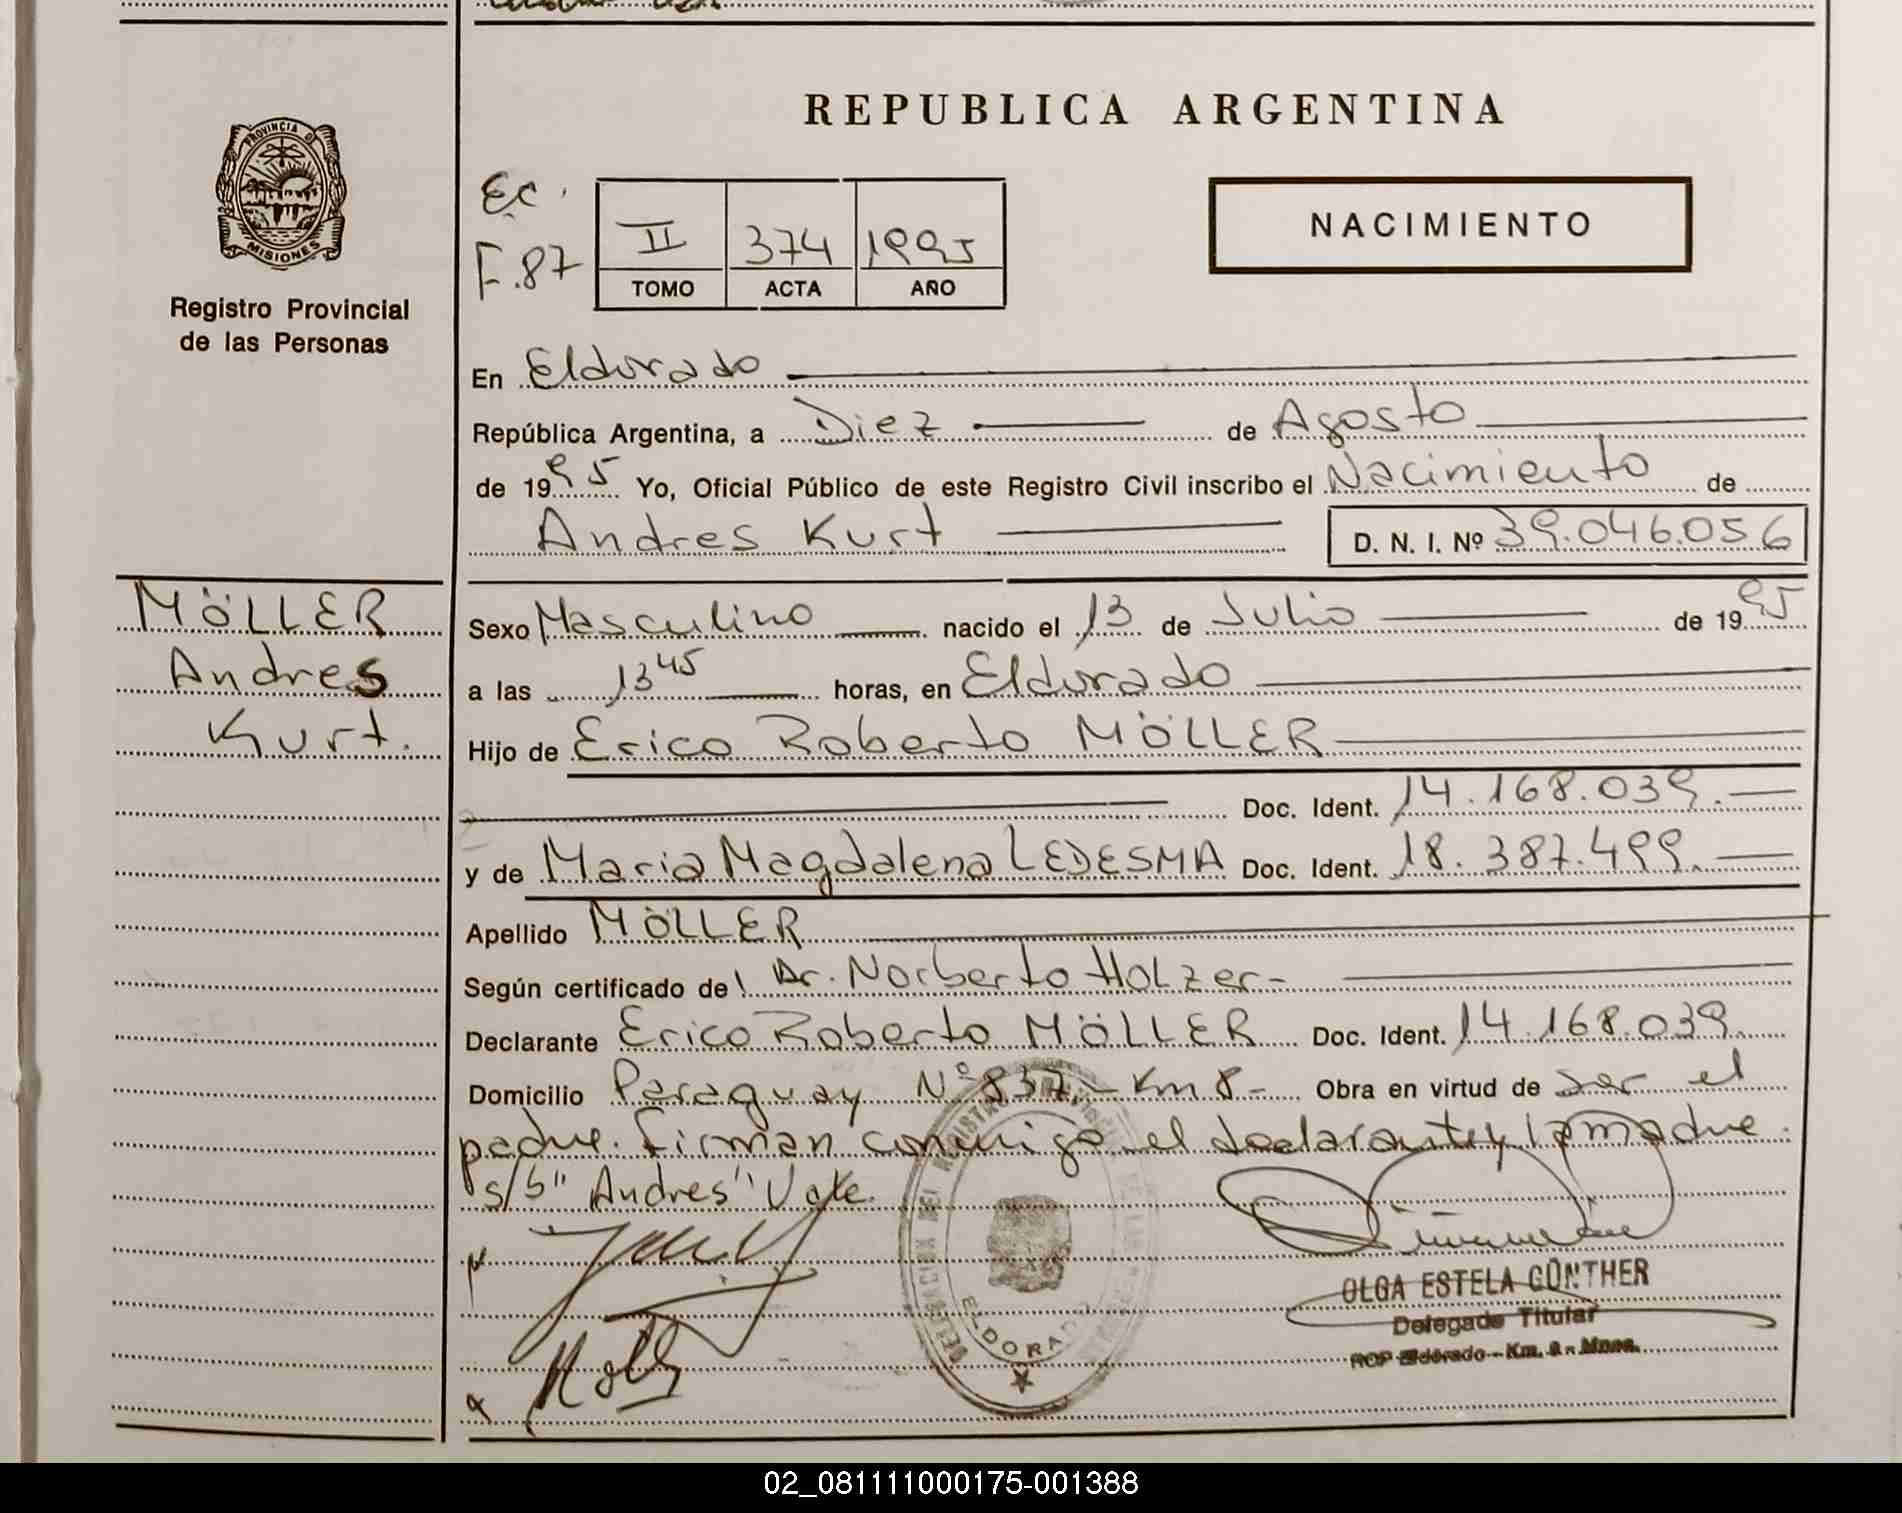 PROVINCIA DE
MISIONES
Registro Provincial
de las Personas
MÖLLER
Andres
Kurt.
REPUBLICA ARGENTINA
Ec.
F.87
II 374 1995
TOMO ACTA AÑO
NACIMIENTO
En Eldorado
República Argentina, a Diez de Agosto
de 1995 Yo, Oficial Público de este Registro Civil inscribo el Nacimiento de
Andres Kurt D. N. I. Nº 39.046.056
Sexo Masculino nacido el 13 de Julio de 1995
a las 13 45 horas, en Eldorado
Hijo de Erico Roberto MÖLLER
Doc. Ident. 14.168.039.
y de Maria Magdalena LEDESMA Doc. Ident. 18.387.499.
Apellido MÖLLER
Según certificado del Dr. Norberto Holzer-
Declarante Erico Roberto MÖLLER Doc. Ident. 14.168.039.
Domicilio Paraguay Nº 837.- Km 8- Obra en virtud de ser el
padre. Firman conmigo el declarante y la madre.
s/b "Andres" Vale.
ELDORADO
OLGA ESTELA GÜNTHER
Delegado Titular
RCP Eldorado - Km.
02_081111000175-001388